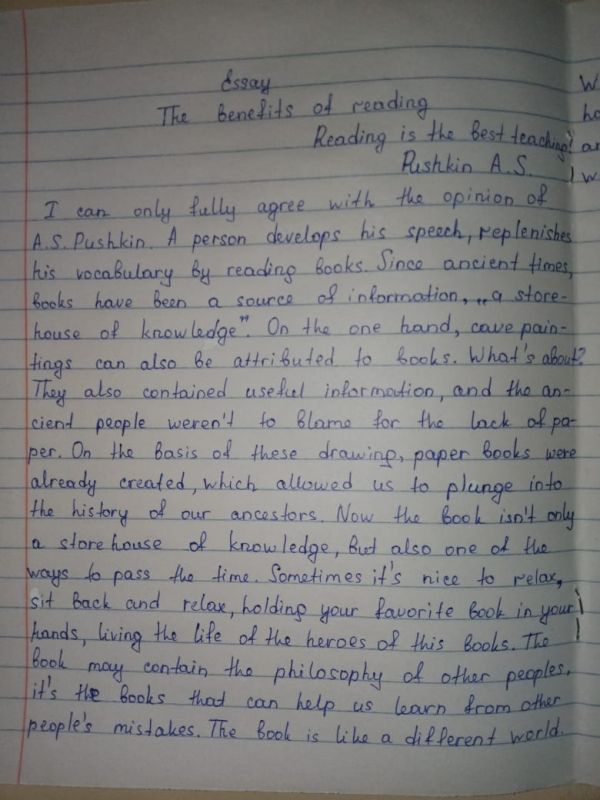 Essay
The benefits of reading
Reading is the best teaching!
Pushkin A.S.
I can only fully agree with the opinion of
A.S. Pushkin. A person develops his speech, replenishes
his vocabulary by reading books. Since ancient times,
books have been a source of information, „a store-
house of knowledge". On the one hand, cave pain-
tings can also be attributed to books. What's about?
They also contained useful information, and the an-
cient people weren't to blame for the lack of pa-
per. On the basis of these drawing, paper books were
already created, which allowed us to plunge into
the history of our ancestors. Now the book isn't only
a storehouse of knowledge, but also one of the
ways to pass the time. Sometimes it's nice to relax,
sit back and relax, holding your favorite book in your
hands, living the life of the heroes of this books. The
book may contain the philosophy of other peoples,
it's the books that can help us learn from other
people's mistakes. The book is like a different world.